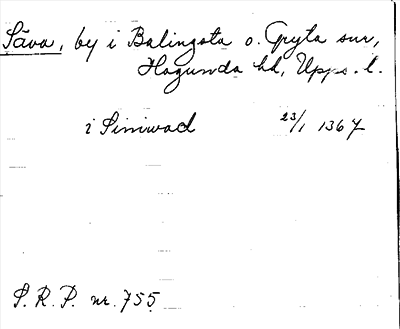 Säva, by i Balingsta o. Gryta snr,
Hagunda hd, Upps. l.
i Siniwad 23/1 1367
S. R. P. nr. 755